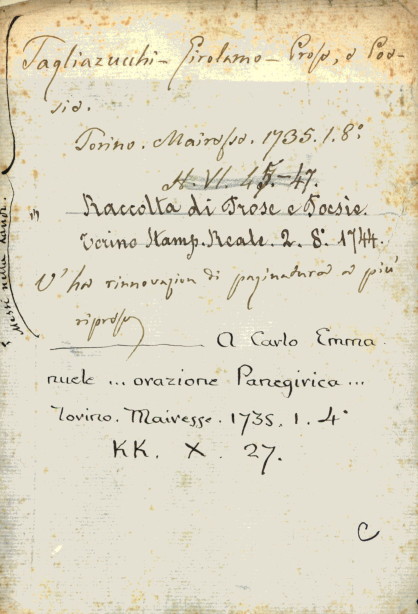 Tagliazucchi - Girolamo - Prose, e Poe-
sie.
Torino. Mairesse. 1735. 1. 8°
H. VI. 45.-47.
" Raccolta di Prose e Poesie.
Torino Stamp. Reale. 2. 8.° 1744.
V'ha rinnovazion di paginatura a più
riprese
A Carlo Emma-
nuele ... orazione Panegirica ...
Torino. Mairesse. 1735. 1. 4°
KK. X. 27.
C
Messe nella